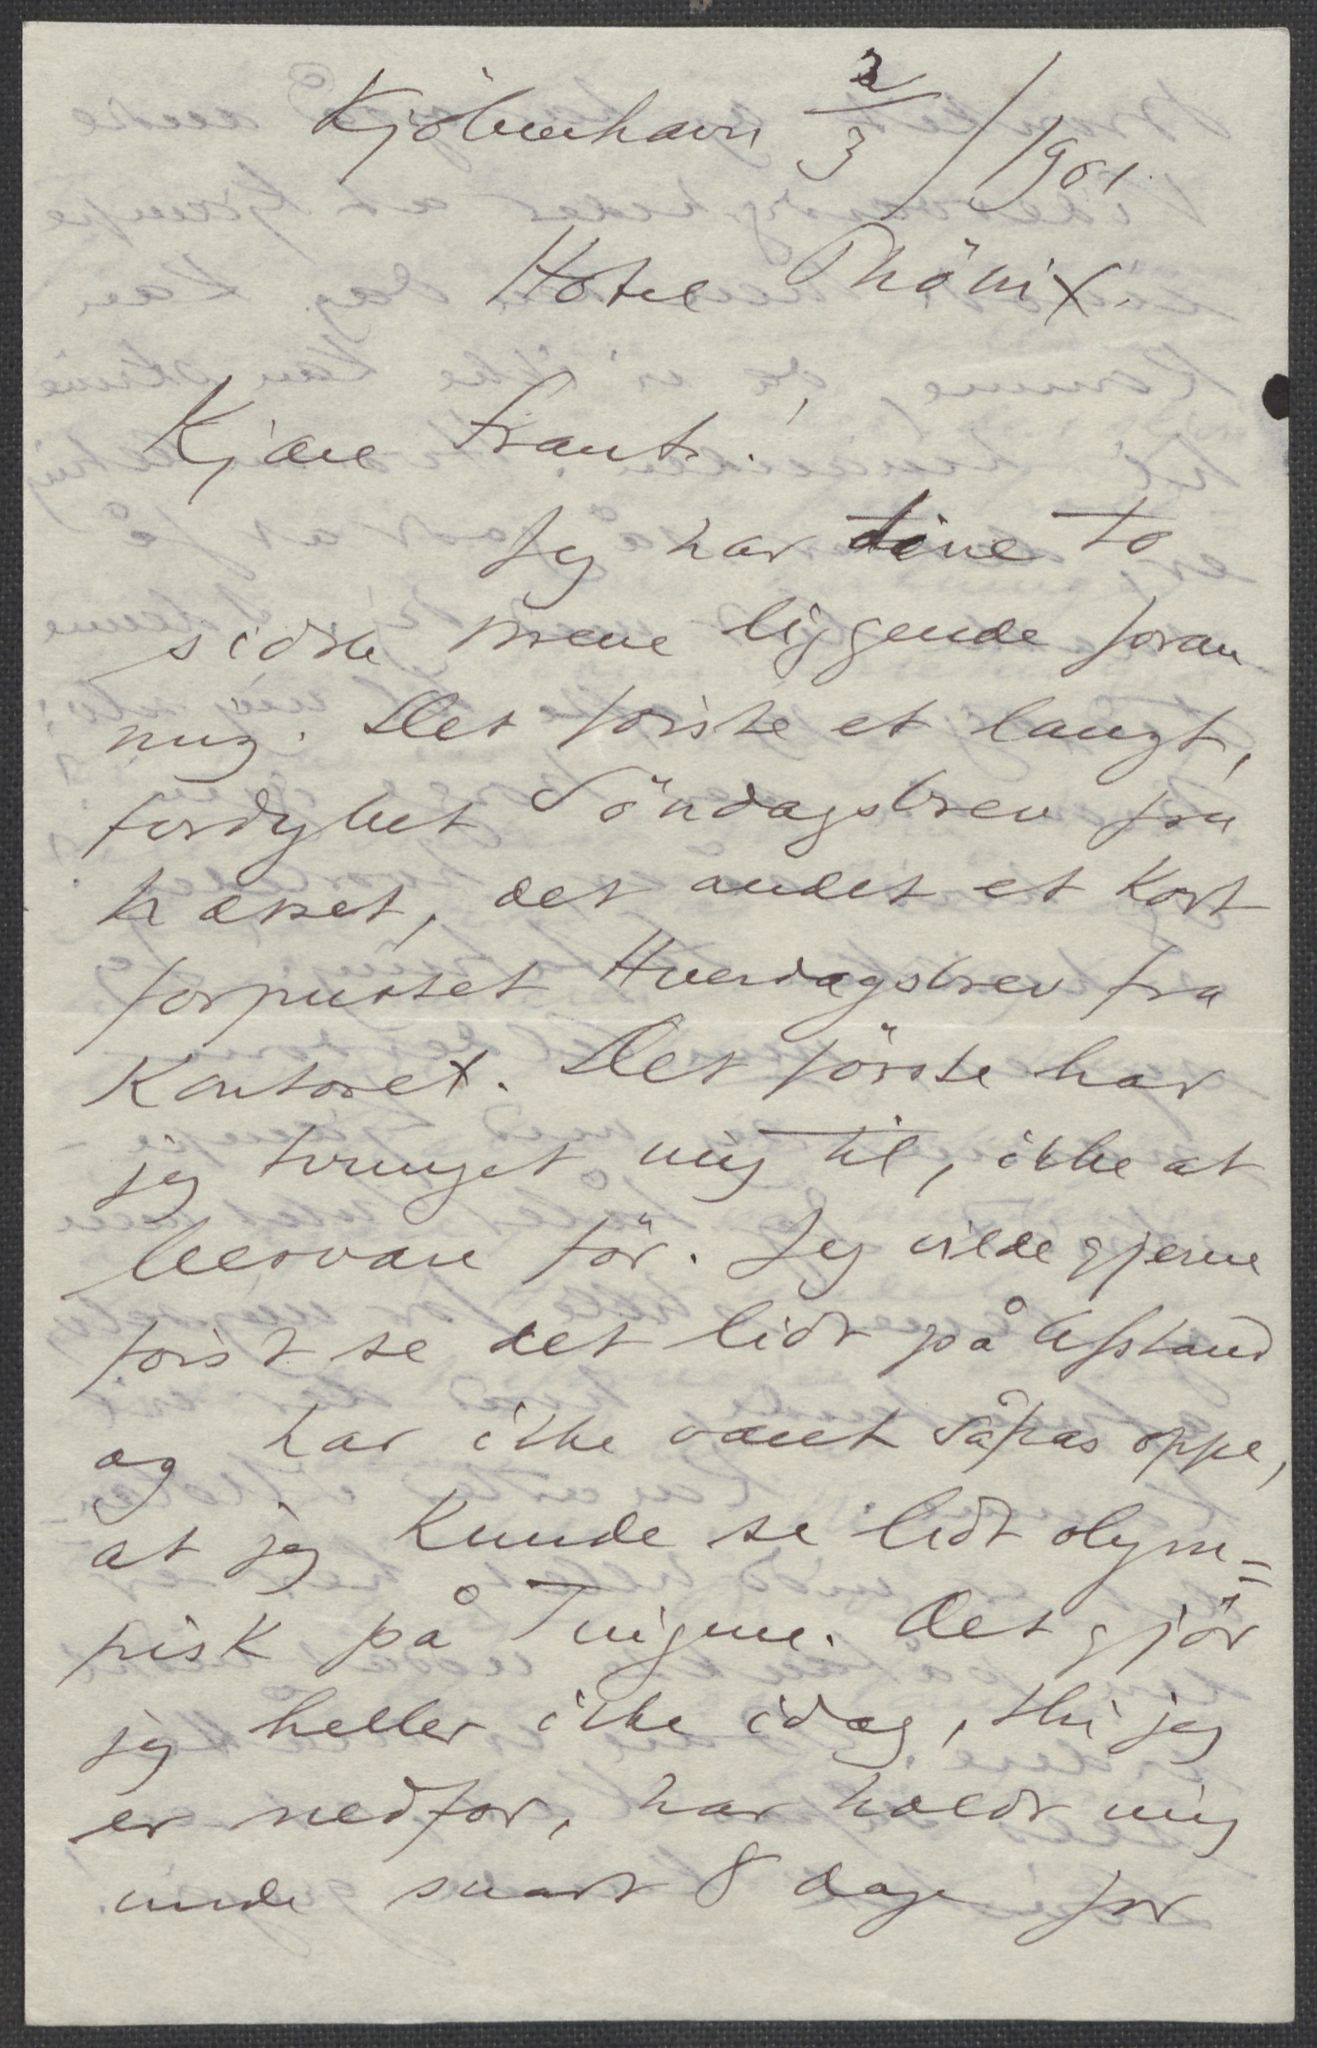 Kjöbenhavn 2/3/1901.
Hotel Phönix.
Kjære Frants!
Jeg har dine to
sidste Breve liggende foran
mig. Det første et langt,
fordybet Söndagsbrev fra
hjemmet, det andet et kort
forpustet Hverdagsbrev fra
Kontoret. Det første har
jeg tvunget mig til, ikke at
besvare för. Jeg vilde gjerne
først se det lidt på Afstand
og har ikke været såpas oppe,
at jeg kunde se lidt olym=
pisk på Tingene. Det gjör
jeg heller ikke idag, thi jeg
er nedfor, har holdt mig
inde snart 8 dage for